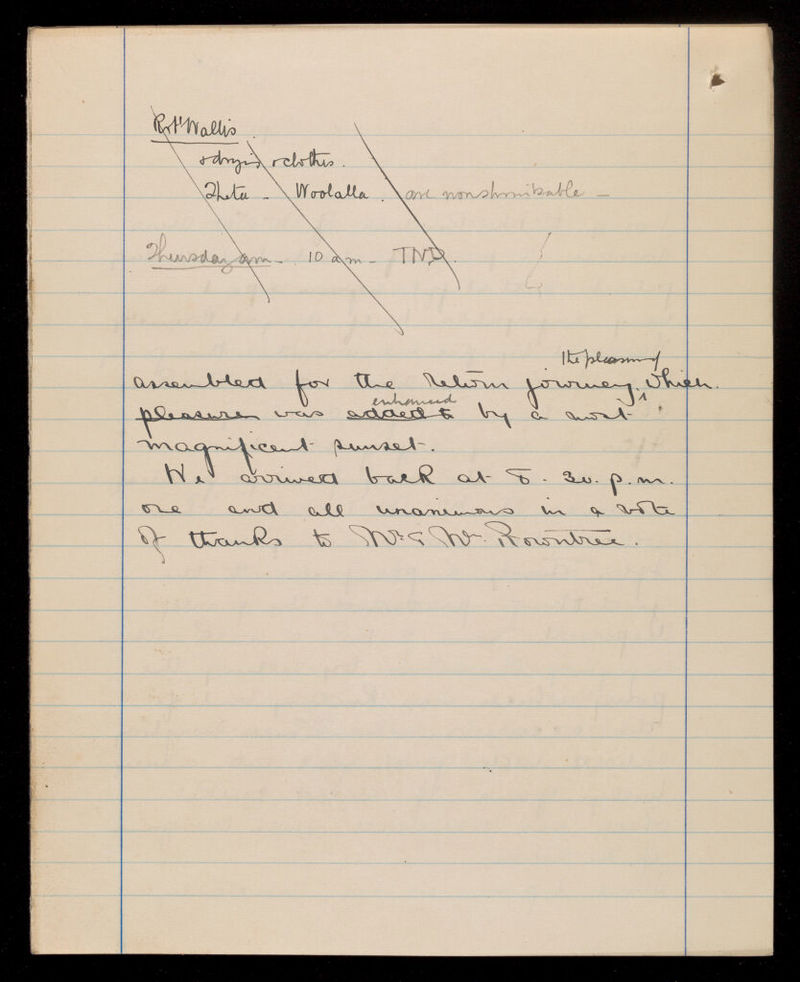 Robt Wallis.
& drying & clothes.
Theta - Woolalla. are nonshrinkable -
Thursday am - 10 am - TND.
the pleasure of
assembled for the return journey, which
pleasure was enhanced added to by a most
magnificent sunset.
We arrived back at 8.30. p.m.
one and all unanimous in a vote
of thanks to Mr & Mrs Rowntree.